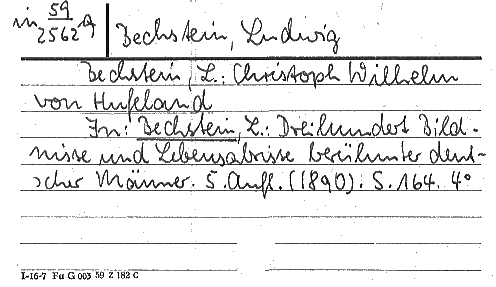 in 59/2562a Bechstein, Ludwig
Bechstein, L.: Christoph Wilhelm
von Hufeland
In: Bechstein, L.: Dreihundert Bild-
nisse und Lebensabrisse berühmter deut-
scher Männer. 5. Aufl. (1890). S. 164. 4°
I-16-7 Fu G 003 59 Z 182 C